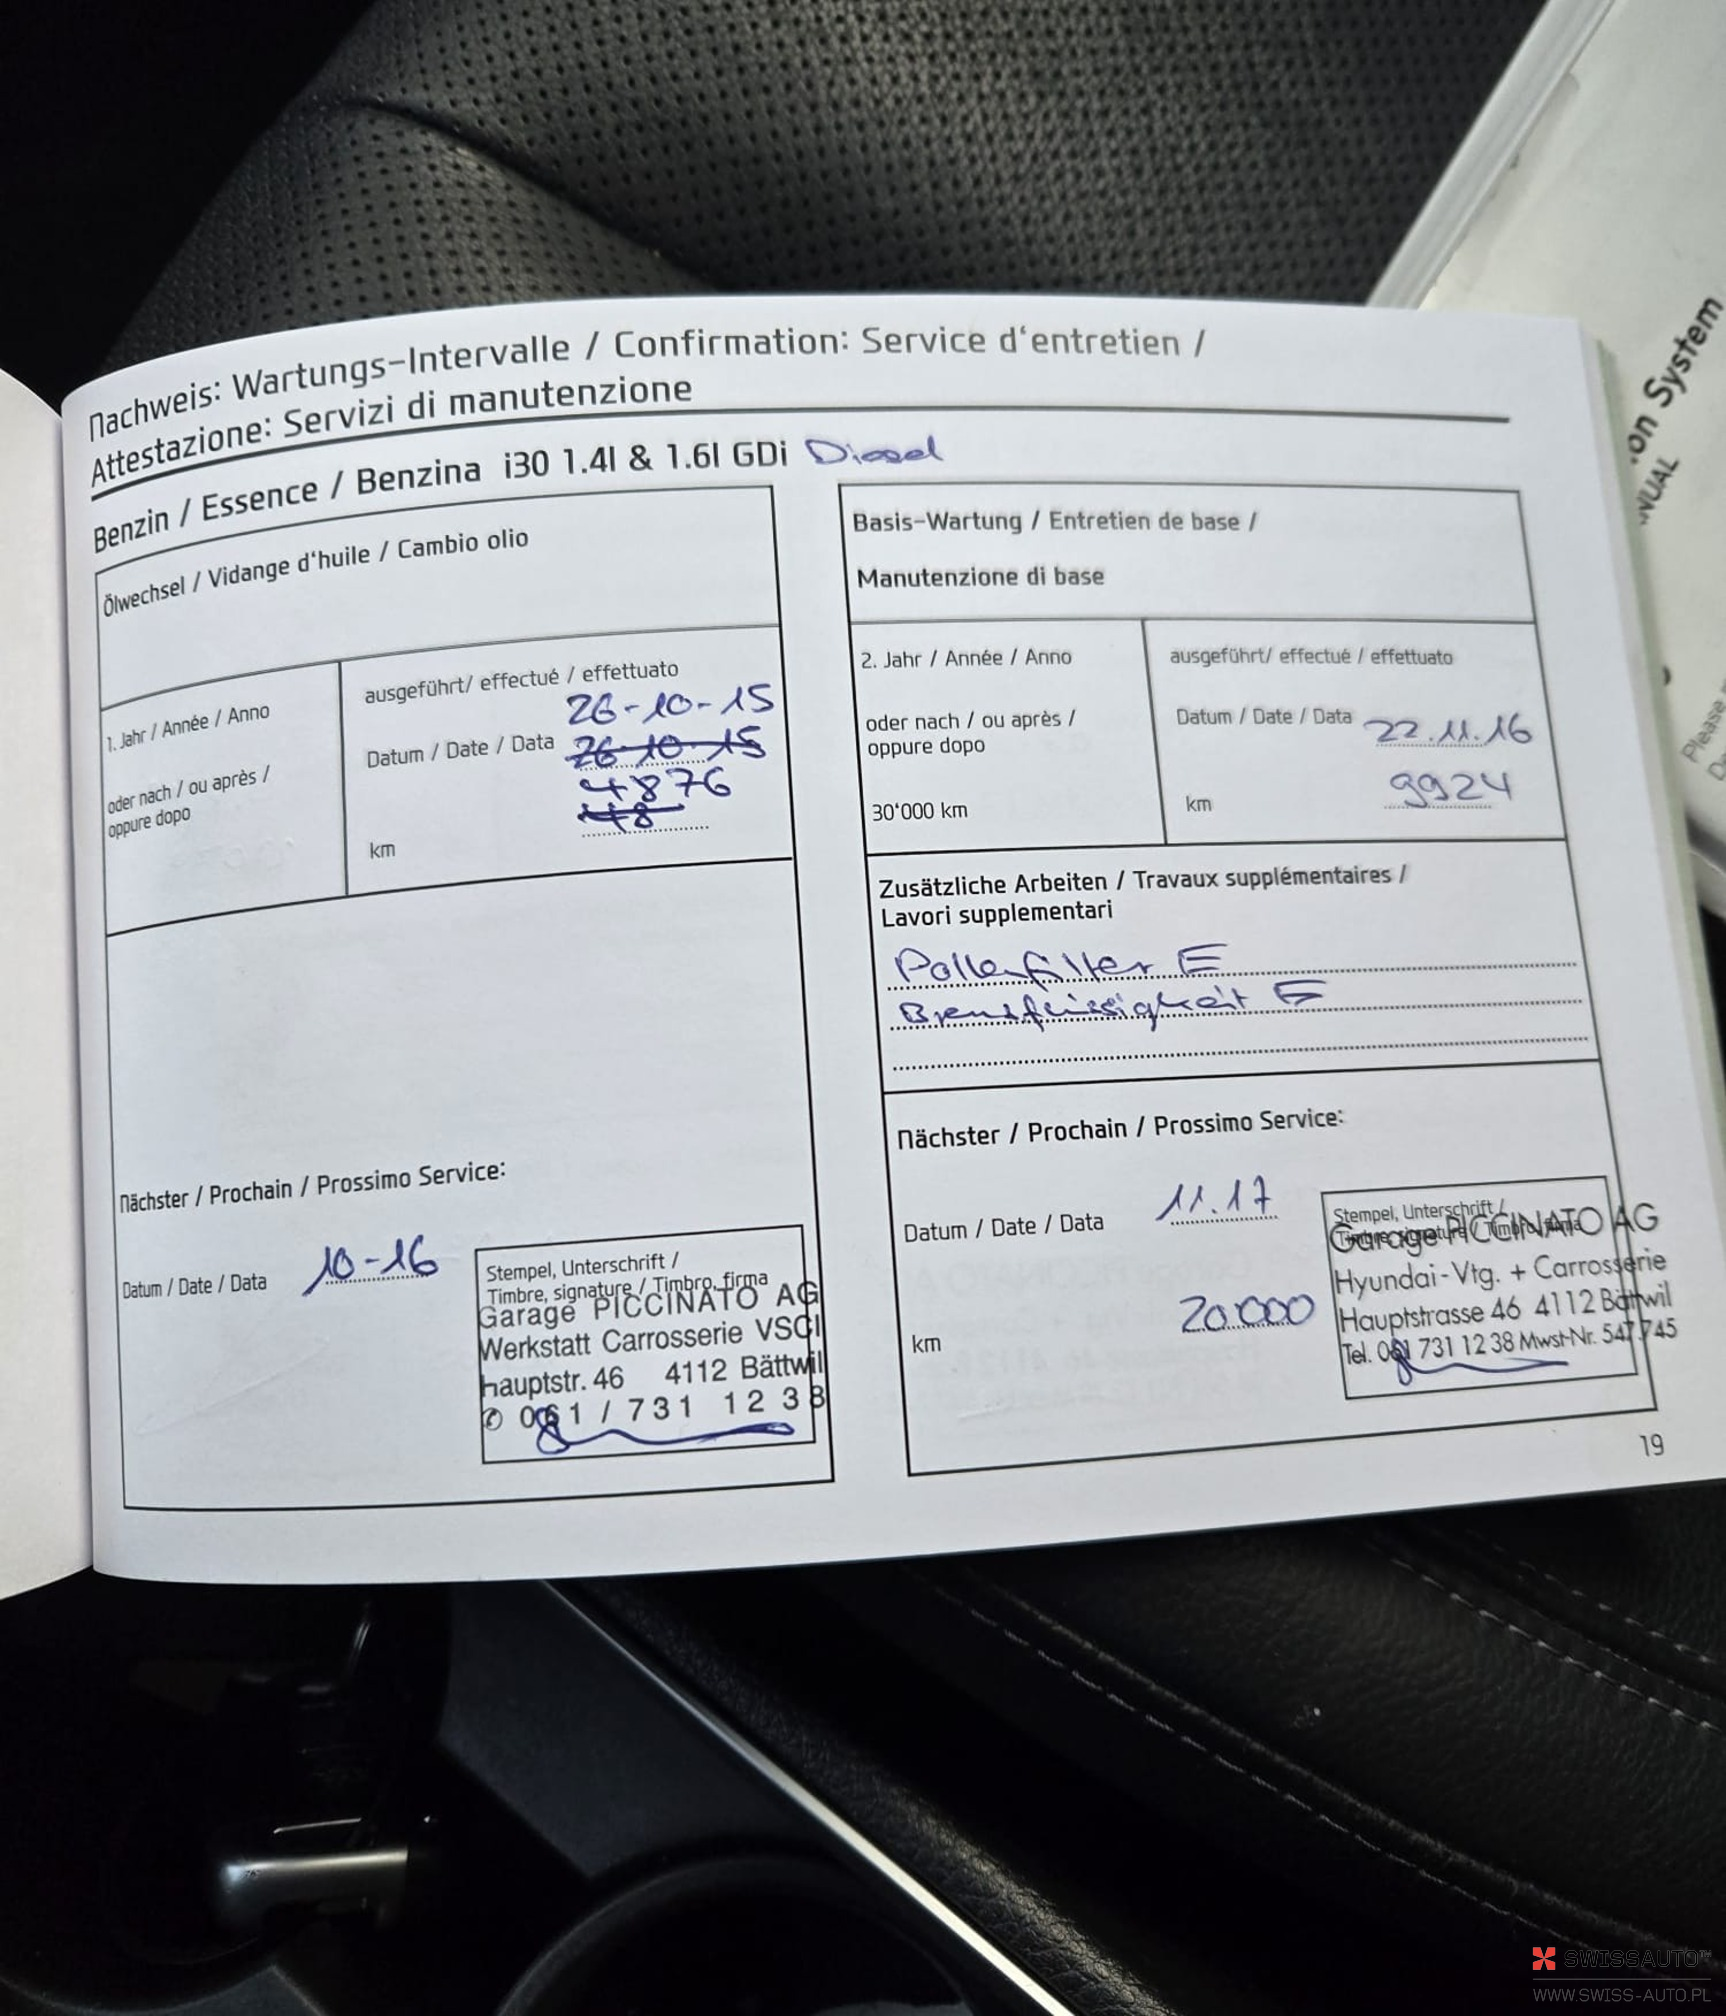 Nachweis: Wartungs-Intervalle / Confirmation: Service d'entretien /
Attestazione: Servizi di manutenzione
Benzin / Essence / Benzina i30 1.4l & 1.6l GDi Diesel
Ölwechsel / Vidange d'huile / Cambio olio
1. Jahr / Année / Anno
oder nach / ou après /
oppure dopo
ausgeführt/ effectué / effettuato
26-10-15
Datum / Date / Data 26-10-15
4876
48
km
Nächster / Prochain / Prossimo Service:
Datum / Date / Data 10-16
Stempel, Unterschrift /
Timbre, signature / Timbro, firma
Garage PICCINATO AG
Werkstatt Carrosserie VSCI
hauptstr. 46 4112 Bättwil
✆ 061 / 731 12 38
Basis-Wartung / Entretien de base /
Manutenzione di base
2. Jahr / Année / Anno
oder nach / ou après /
oppure dopo
30'000 km
ausgeführt/ effectué / effettuato
Datum / Date / Data 22.11.16
km 9924
Zusätzliche Arbeiten / Travaux supplémentaires /
Lavori supplementari
Pollenfilter E
Bremsflüssigkeit E
Nächster / Prochain / Prossimo Service:
Datum / Date / Data 11.17
km 20.000
Stempel, Unterschrift /
Timbre, signature / Timbro, firma
Garage PICCINATO AG
Hyundai-Vtg. + Carrosserie
Hauptstrasse 46 4112 Bättwil
Tel. 061 731 12 38 Mwst-Nr. 547.745
19
on System
NUAL
Please
SWISSAUTO
WWW.SWISS-AUTO.PL